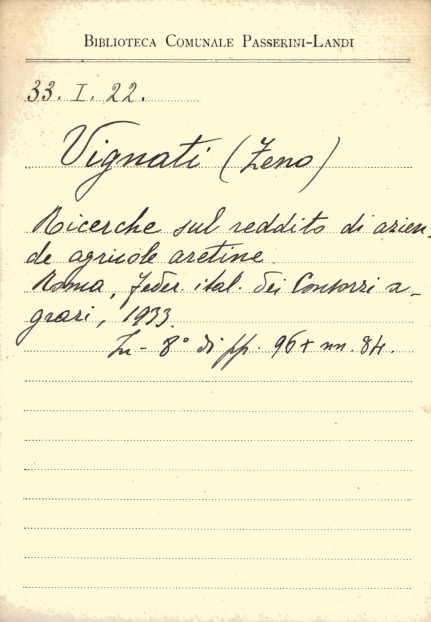 BIBLIOTECA COMUNALE PASSERINI-LANDI
33. I. 22.
Vignati (Zeno)
Ricerche sul reddito di azien-
de agricole aretine
Roma, Feder. ital. dei Consorzi a-
grari, 1933.
In-8° di pp. 96 + nn. 84.